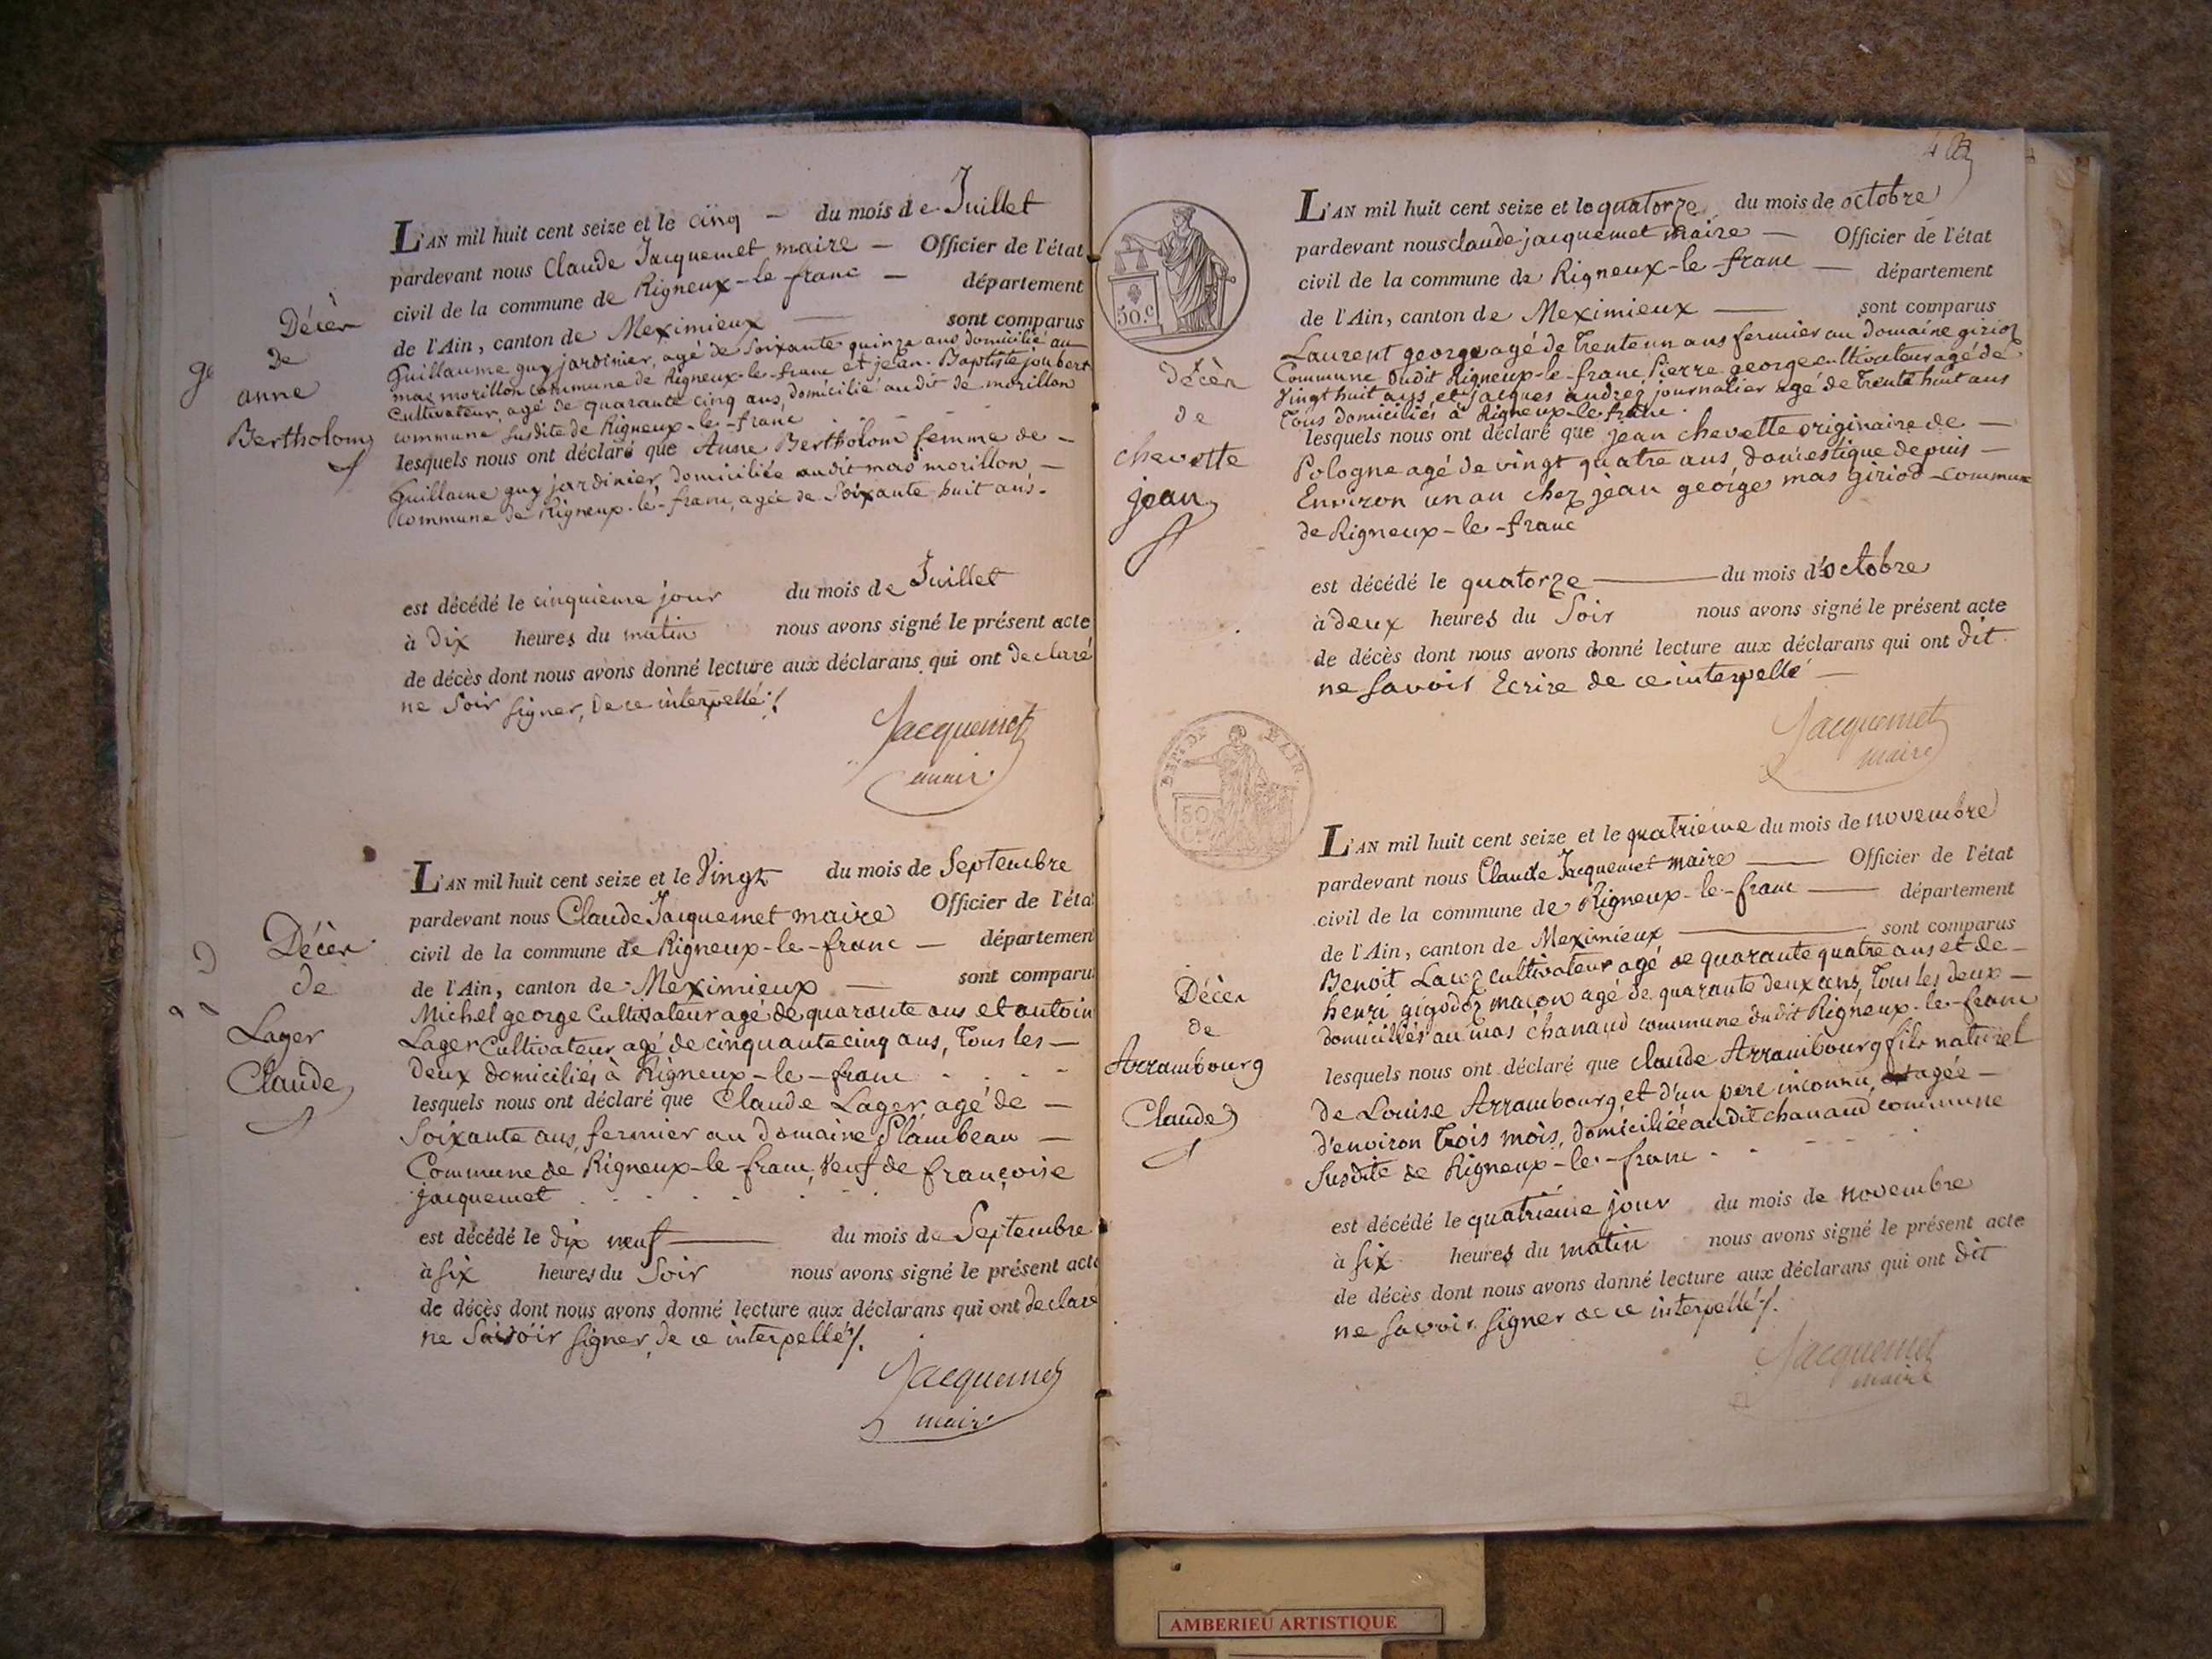 Décès
de
anne
Bertholom
L'AN mil huit cent seize et le cinq — du mois de Juillet
pardevant nous Claude Jacquemet maire — Officier de l'état
civil de la commune de Rigneux-le-franc — département
de l'Ain, canton de Meximieux — sont comparus
Guillaume guy jardinier, agé de Soixante quinze ans, domicilié au
mas morillon commune de Rigneux-le-franc et jean-Baptiste joubert
Cultivateur, agé de quarante cinq ans, domicilié audit de morillon
commune susdite de Rigneux-le-franc
lesquels nous ont déclaré que Anne Bertholom femme de —
Guillaume guy jardinier domiciliée audit mas morillon —
commune de Rigneux-le-franc, agée de Soixante huit ans.
est décédé le cinquieme jour du mois de Juillet
à Dix heures du matin nous avons signé le présent acte
de décès dont nous avons donné lecture aux déclarans qui ont declaré
ne Soir signer, de ce interpellé ./.
Jacquemet
maire
Décès
de
Lager
Claude
L'AN mil huit cent seize et le Vingt du mois de Septembre
pardevant nous Claude Jacquemet maire Officier de l'éta
civil de la commune de Rigneux-le-franc — départemen
de l'Ain, canton de Meximieux — sont comparu
Michel george Cultivateur agé de quarante ans et antoin
Lager Cultivateur agé de cinquante cinq ans, Tous les —
Deux domiciliés à Rigneux-le-franc
lesquels nous ont déclaré que Claude Lager agé de —
Soixante ans, fermier au Domaine Flambeau —
Commune de Rigneux-le-franc, Veuf de françoise
jacquemet
est décédé le dix neuf — du mois de Septembre
à Six heures du Soir nous avons signé le présent acte
de décès dont nous avons donné lecture aux déclarans qui ont declaré
ne Savoir signer, de ce interpellé ./.
Jacquemet
maire
50.c
Décès
de
chevette
jean
L'AN mil huit cent seize et le quatorze du mois de octobre
pardevant nous claude jacquemet maire — Officier de l'état
civil de la commune de Rigneux-le-franc — département
de l'Ain, canton de Meximieux — sont comparus
Laurent george agé de Trente un ans fermier au domaine giriod
Commune dudit Rigneux-le-franc Pierre george cultivateur agé de
Vingt huit ans, et jacques andrez journalier agé de Trente huit ans
Tous domiciliés à Rigneux-le-franc.
lesquels nous ont déclaré que jean chevette originaire de —
Pologne agé de vingt quatre ans, domestique depuis —
Environ un an chez jean george mas giriod commune
de Rigneux-le-franc
est décédé le quatorze — du mois d'octobre
à deux heures du Soir nous avons signé le présent acte
de décès dont nous avons donné lecture aux déclarans qui ont dit
ne savoir Ecrire de ce interpellé —
Jacquemet
maire
DEPt. DE L'AIN
50
Décès
de
Arrambourg
Claude
L'AN mil huit cent seize et le quatrieme du mois de novembre
pardevant nous Claude Jacquemet maire — Officier de l'état
civil de la commune de Rigneux-le-franc — département
de l'Ain, canton de Meximieux — sont comparus
Benoit cultivateur agé de quarante quatre ans et de —
henri gigodoz maçon agé de quarante deux ans, Tous les deux —
domiciliés au mas chanaud commune dudit Rigneux-le-franc
lesquels nous ont déclaré que claude Arrambourg fils naturel
de Louise Arrambourg et d'un pere inconnu, agée —
d'environ Trois mois, domiciliée audit chanaud commune
susdite de Rigneux-le-franc
est décédé le quatrieme jour du mois de novembre
à six heures du matin nous avons signé le présent acte
de décès dont nous avons donné lecture aux déclarans qui ont dit
ne savoir signer de ce interpellé ./.
Jacquemet
maire
AMBERIEU ARTISTIQUE